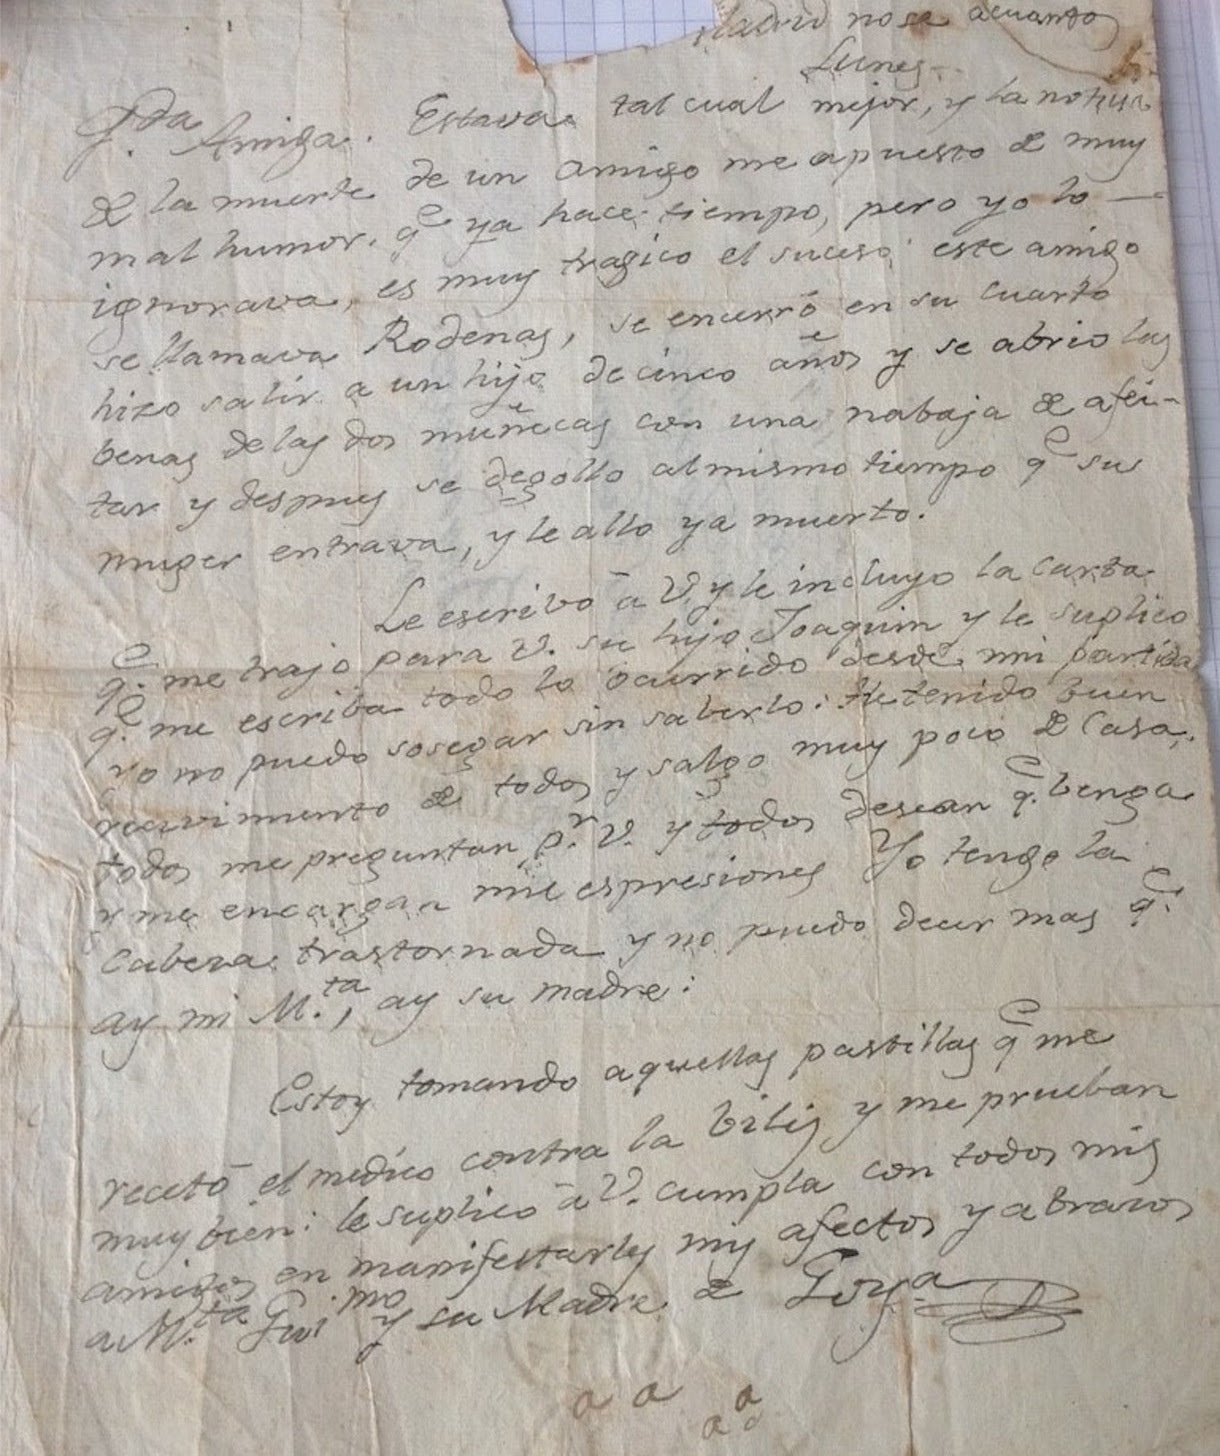 Madrid no se a cuantos
Lunes
Q.da Amiga. Estava tal cual mejor, y la noticia
de la muerte de un amigo me a puesto de muy
mal humor. q.e ya hace tiempo, pero yo lo
ignorava, es muy tragico el suceso: este amigo
se llamava Rodenas, se encerró en su cuarto
hizo salir a un hijo de cinco años y se abrio las
benas de las dos muñecas con una nabaja de afei-
tar y despues se degollo al mismo tiempo q.e su
muger entrava, y le allo ya muerto.
Le escribo á V. y le incluyo la carta
q.e me trajo para V. su hijo Joaquin y le suplico
q.e me escriba todo lo ocurrido desde mi partida
yo no puedo sosegar sin saberlo: He tenido buen
recivimiento de todos y salgo muy poco de Casa,
todos me preguntan p.r V. y todos desean q.e benga
y me encargan mil espresiones Yo tengo la
cabeza trastornada y no puedo decir mas q.e
ay mi M.ta, ay su madre:
Estoy tomando aquellas pastillas q.e me
recetó el medico contra la bilis y me prueban
muy bien: le suplico á V. cumpla con todos mis
amigos en manifestarles mis afectos y abrazos
a M.ta Gui.mo y su Madre de Goya
a a a
a